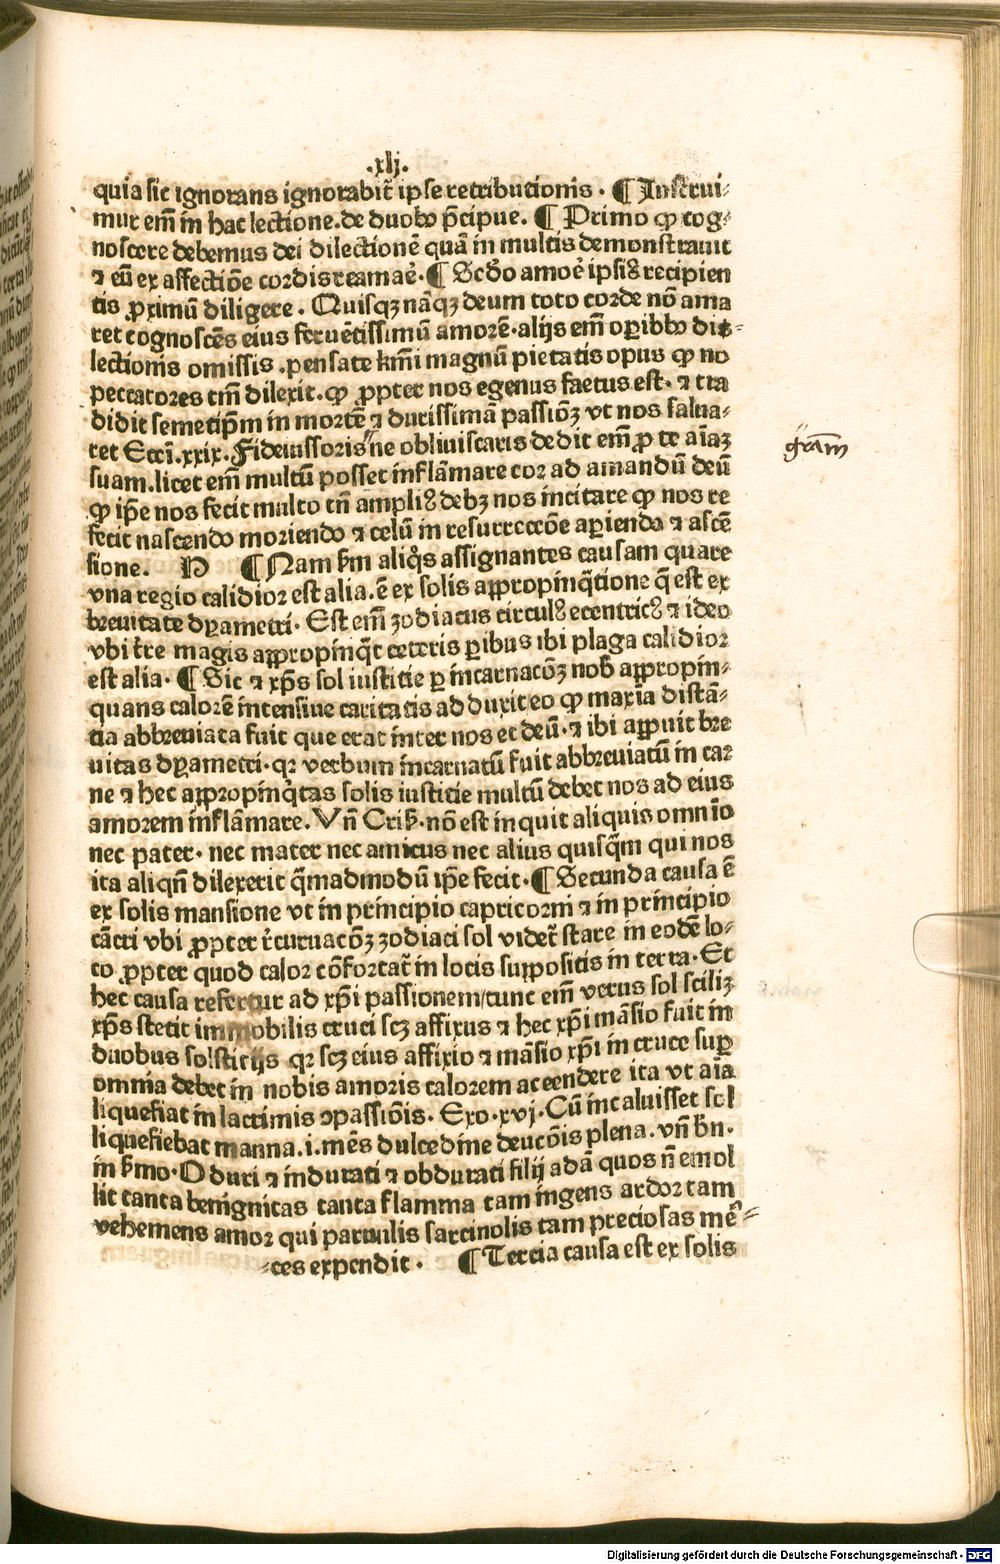 .xlj.
quia sic ignorans ignorabit̃ ipse retributionis . ¶ Instrui-
mur em̃ in hac lectione . de duobꝰ p̃cipue . ¶ Primo ꝙ cog-
noscere debemus dei dilectionẽ quã in multis demonstrauit
⁊ eũ ex affectiõe cordis reamaẽ . ¶ Scđo amoẽ ipsiꝰ recipien
tis ꝓximũ diligere . Quisqꝫ nãqꝫ deum toto corde nõ ama
ret cognoscẽs eius feruẽtissimũ amorẽ . alijs em̃ oꝑibꝰ di-
lectionis omissis . pensate km̃i magnũ pietatis opus ꝙ no
peccatores tm̃ dilexit . ꝙ ꝓpter nos egenus factus est . ⁊ tra
didit semetip̃m in mortẽ ⁊ durissimã passiõꝫ vt nos salua-
ret Eccĩ . xxix . Fideiussoris ne obliuiscaris dedit em̃ ꝓ te aĩaꝫ
suam . licet em̃ multũ posset inflãmare cor ad amandũ deũ
ꝙ ip̃e nos fecit multo tñ ampliꝰ debꝫ nos incitare ꝙ nos re
fecit nascendo moriendo ⁊ celũ in resurreccõe aꝑiendo ⁊ ascẽ
sione . N ¶ Nam ẜm aliq̃s assignantes causam quare
vna regio calidior est alia . ẽ ex solis appropinq̃tione q̃ est ex
breuitate dyametri . Est em̃ zodiacus circulꝰ ecentricꝰ ⁊ ideo
vbi tr̃e magis appropinq̃t ceteris ꝑtibus ibi plaga calidior
est alia . ¶ Sic ⁊ xp̃s sol iusticie ꝑ incarnacõꝫ nob̃ appropin-
quans calorẽ intensiue caritatis adduxit eo ꝙ maxĩa distã-
tia abbreuiata fuit que erat inter nos et deũ . ⁊ ibi apꝑuit bre
uitas dyametri . qꝛ verbum incarnatũ fuit abbreuiatũ in car
ne ⁊ hec appropinq̃tas solis iusticie multũ debet nos ad eius
amorem inflãmare . Vñ Criẜ . nõ est inquit aliquis omnĩo
nec pater . nec mater nec amicus nec alius quisq̃m qui nos
ita aliqñ dilexerit q̃madmodũ ip̃e fecit . ¶ Secunda causa ẽ
ex solis mansione vt in principio capricorni ⁊ in principio
cãcri vbi ꝓpter r̃curuacõꝫ zodiaci sol videt̃ stare in eodẽ lo-
co ꝓpter quod calor cõfortat̃ in locis suppositis in terra . Et
hec causa refertur ad xp̃i passionem / tunc em̃ verus sol sciliꝫ
xp̃s stetit immobilis cruci scꝫ affixus ⁊ hec xp̃i mãsio fuit in
duobus solsticijs qꝛ scꝫ eius affixio ⁊ mãsio xp̃i in cruce suꝑ
omnia debet in nobis amoris calorem accendere ita vt aĩa
liquefiat in lacrimis ɔpassiõis . Exo . xvj . Cũ incaluisset sol
liquefiebat manna . i . mẽs dulcedine deuciõis plena . vñ b̃n .
in ẜmo . O duri ⁊ indurati ⁊ obdurati filij adã quos ñ emol
lit tanta benignitas tanta flamma tam ingens ardor tam
vehemens amor qui paruulis sarcinolis tam preciosas mẽ-
-ces expendit . ¶ Tercia causa est ex solis
Digitalisierung gefördert durch die Deutsche Forschungsgemeinschaft - DFG